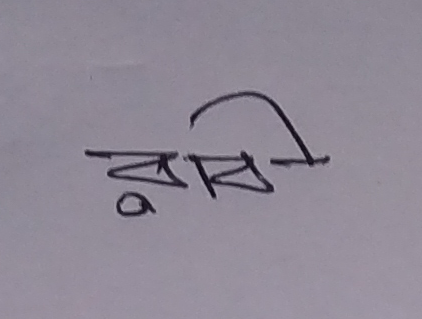 রবি